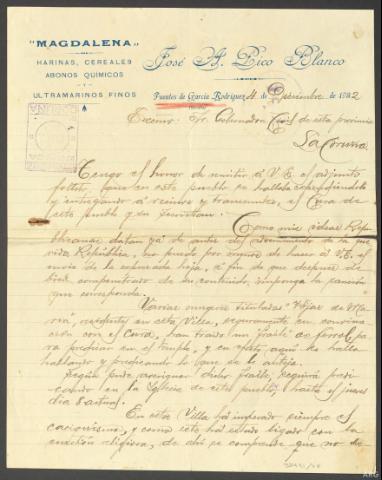 "MAGDALENA"
HARINAS, CEREALES
ABONOS QUIMICOS
- Y -
ULTRAMARINOS FINOS
José A. Pico Blanco
Puentes de García Rodríguez, 4 de Diciembre de 1932
Excmo. Sr. Gobernador Civil de esta provincia
La Coruña
Tengo el honor de remitir a V. E. el adjunto
folleto, que en este pueblo se hallaba expendiéndolo
y entregando a vecinos y transeuntes, el Cura de
este pueblo
Como mis ideas Repu-
blicanas datan ya de antes del advenimiento de la que-
rida República, no puedo por menos de hacer a V. E. el
envío de la expresada hoja, a fin de que despues de
bien compenetrado de su contenido, imponga la sanción
que corresponda.
Varias mujeres tituladas "Hijas de Ma-
ria", residentes en esta Villa, seguramente en conniven-
cia con el Cura, han traido "un fraile" de Ferrol, pa-
ra predicar en el templo, y en efecto, aquí se halla
hablando y predicando lo que se le antoja.
Según pude averiguar dicho fraile, seguirá predi-
cando en la Iglesia de este pueblo, hasta el jueves
día 8 actual.
En esta Villa ha imperado siempre el
caciquismo, y como este ha estado ligado con la
cuestión religiosa, de ahí se comprende que no de-